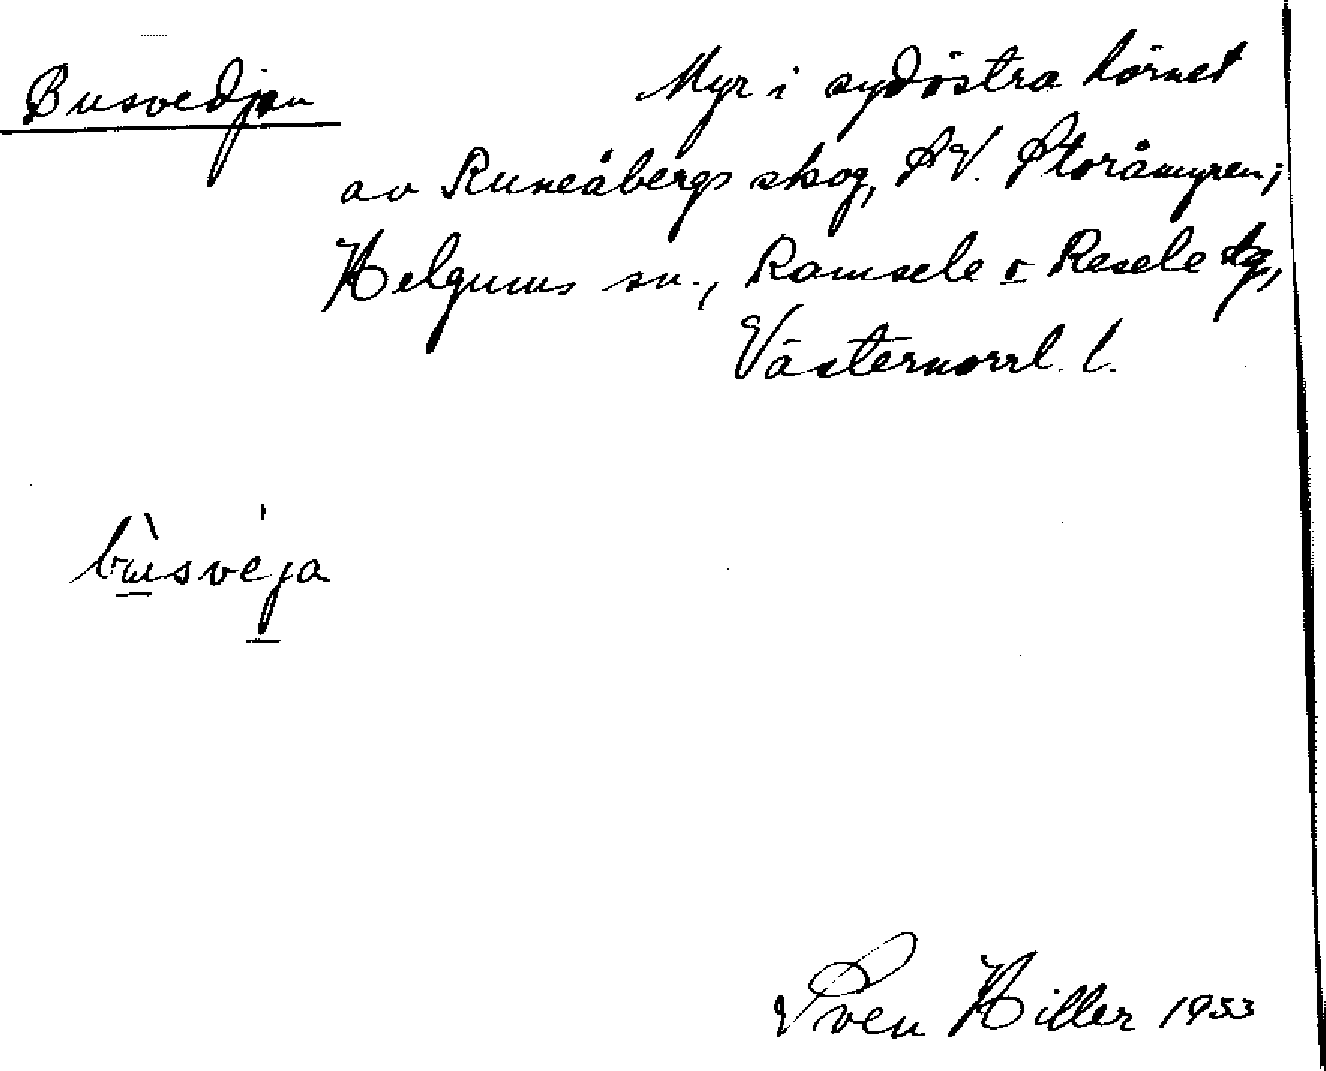 Busvedjan
Myr i sydöstra hörnet
av Runeåbergs skog, SV. Storåmyren;
Helgums sn., Ramsele o Resele tg,
Västernorrl. l.
bùsvéja
Sven Hiller 1953